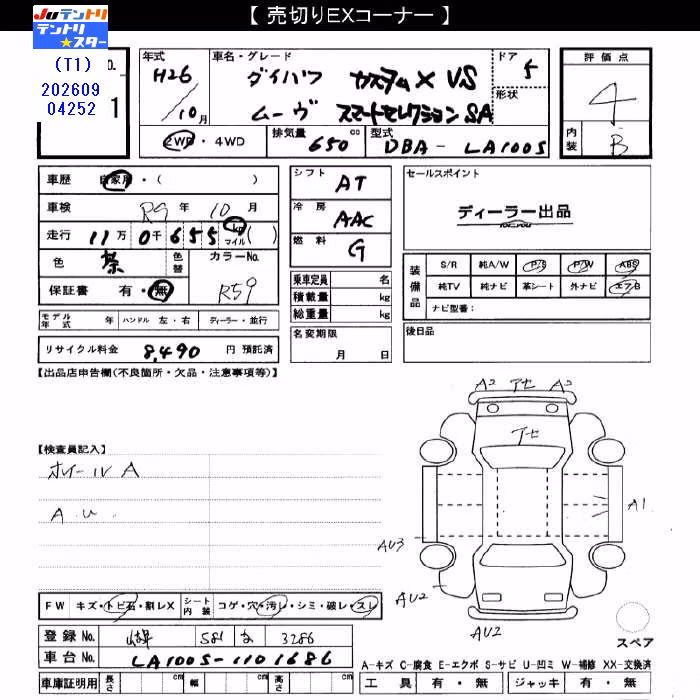 【 売切りEXコーナー 】
JUテントリ
テントリ★スター
(T1)
202609
04252
o.
1
年式 H26 / 10月
車名・グレード
ダイハツ カスタムX VS
ムーヴ スマートセレクションSA
ドア 5
形状
評価点
4
内装 B
2WD・4WD
排気量 650 cc
型式 DBA-LA100S
車歴 自家用・( )
車検 R9年 10月
走行 11万 0千 6 5 5 km マイル ( )
色 紫 色替
カラーNo. R59
保証書 有・無
モデル年式 年 ハンドル 左・右 ディーラー・並行
リサイクル料金 8,490 円 預託済
シフト AT
冷房 AAC
燃料 G
乗車定員 名
積載量 kg
総重量 kg
名変期限
月 日
セールスポイント
ディーラー出品
装備品
S/R 純A/W P/S P/W ABS
純TV 純ナビ 革シート 外ナビ エアB
ナビ型番：
後日品
【出品店申告欄(不良箇所・欠品・注意事項等)】
【検査員記入】
ホイールA
A.U.
A2 アセ A2
アセ
A1
AU3
AU2
AU2
スペア
FW キズ・トビ石・割レX
シート内装 コゲ・穴・汚レ・シミ・破レ・スレ
登録No. 581 3286
車台No. LA100S-1101686
車庫証明用 長さ cm 幅 cm 高さ cm
A-キズ C-腐食 E-エクボ S-サビ U-凹ミ W-補修 XX-交換済
工具 有・無 ジャッキ 有・無